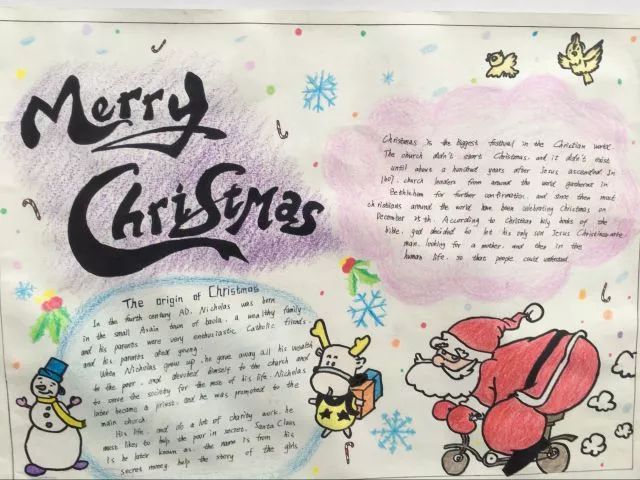 Merry
Christmas
Christmas is the biggest festival in the Christian world.
The church didn't start Christmas, and it didn't exist
until about a hundred years after Jesus ascended. In
church leaders from around the world gathered in
Bethlehem for further confirmation, and since then most
christians around the world have been celebrating Christmas on
December 25 th. According to Christian holy books of the
bible, god decided to let his only son Jesus
man, looking for a mother, and then in the
human life, so that people could understand
The origin of Christmas
In the fourth century AD, Nicholas was born
in the small Asian town of baola, a wealthy family
and his parents were very enthusiastic Catholic friends
and his parents died young.
When Nicholas grew up, he gave away all his wealth
to the poor, and devoted himself to the church and
to serve the society for the rest of his life. Nicholas
later became a priest, and he was promoted to the
main church.
His life, and do a lot of charity work, he
most likes to help the poor in secret, Santa Claus
is he later known as, the name is from his
secret money help the story of the girls